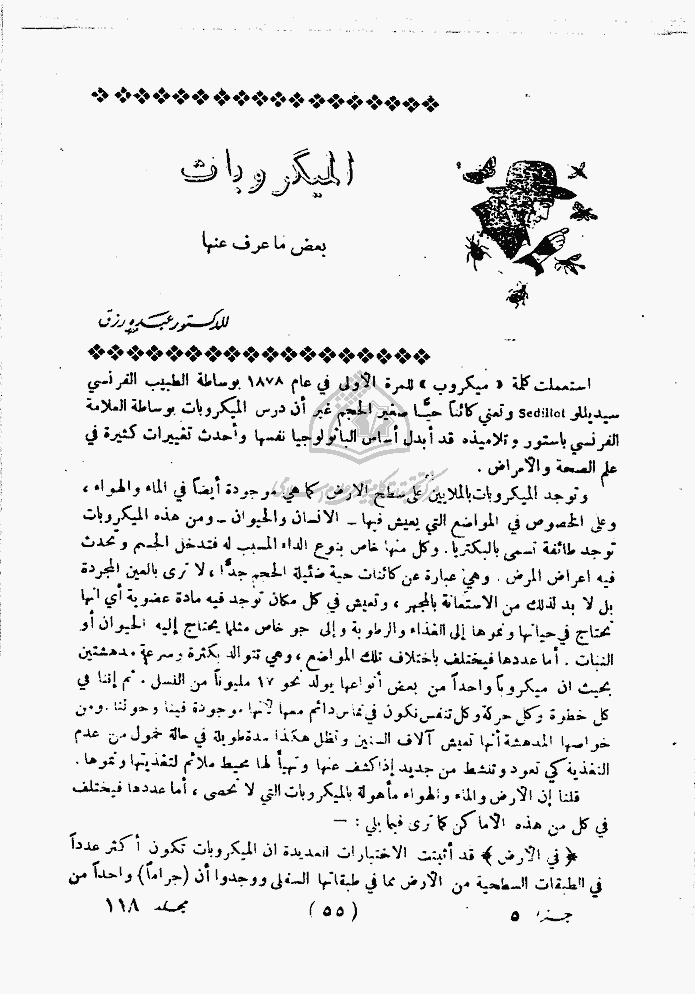 الميكروبات
بعض ما عرف عنها
للدكتور عبده رزق
استعملت كلمة « ميكروب » للمرة الأولى في عام ١٨٧٨ بوساطة الطبيب الفرنسي
سيديللو Sedillot وتعني كائناً حيًّا صغير الحجم غير أن درس الميكروبات بوساطة العلامة
الفرنسي باستور وتلاميذه قد أبدل أساس الباثولوجيا نفسها وأحدث تغييرات كثيرة في
علم الصحة والأمراض .
وتوجد الميكروبات بالملايين على سطح الارض كما هي موجودة أيضاً في الماء والهواء ،
وعلى الخصوص في المواضع التي يعيش فيها ــ الانسان والحيوان ــ ومن هذه الميكروبات
توجد طائفة تسمى بالبكتريا . وكل منها خاص بنوع الداء المسبب له فتدخل الجسم وتحدث
فيه اعراض المرض . وهي عبارة عن كائنات حية ضئيلة الحجم جدًّا ، لا ترى بالعين المجردة
بل لا بد لذلك من الاستعانة بالمجهر ، وتعيش في كل مكان توجد فيه مادة عضوية أي انها
تحتاج في حياتها ونموها إلى الغذاء والرطوبة وإلى جو خاص مثلما يحتاج إليه الحيوان أو
النبات . أما عددها فيختلف باختلاف تلك المواضع ، وهي تتوالد بكثرة وسرعة مدهشتين
بحيث ان ميكروباً واحداً من بعض أنواعها يولد نحو ١٧ مليوناً من النسل . ثم إننا في
كل خطرة وكل حركة وكل تنفس نكون في تماس دائم معها لأنها موجودة فينا وحولنا . ومن
خواصها المدهشة أنها تعيش آلاف السنين وتظل هكذا مدة طويلة في حالة خمول من عدم
التغذية كي تعود وتنشط من جديد إذا كشف عنها وتهيأ لها محيط ملائم لتغذيتها ونموها .
قلنا إن الأرض والماء والهواء مأهولة بالميكروبات التي لا تحصى ، أما عددها فيختلف
في كل من هذه الأماكن كما ترى فيما يلي : —
﴿ في الأرض ﴾ قد أثبتت الاختبارات العديدة ان الميكروبات تكون أكثر عدداً
في الطبقات السطحية من الأرض مما في طبقاتها السفلى ووجدوا أن (جراماً) واحداً من
جزء ٥ (٥٥) مجلد ١١٨